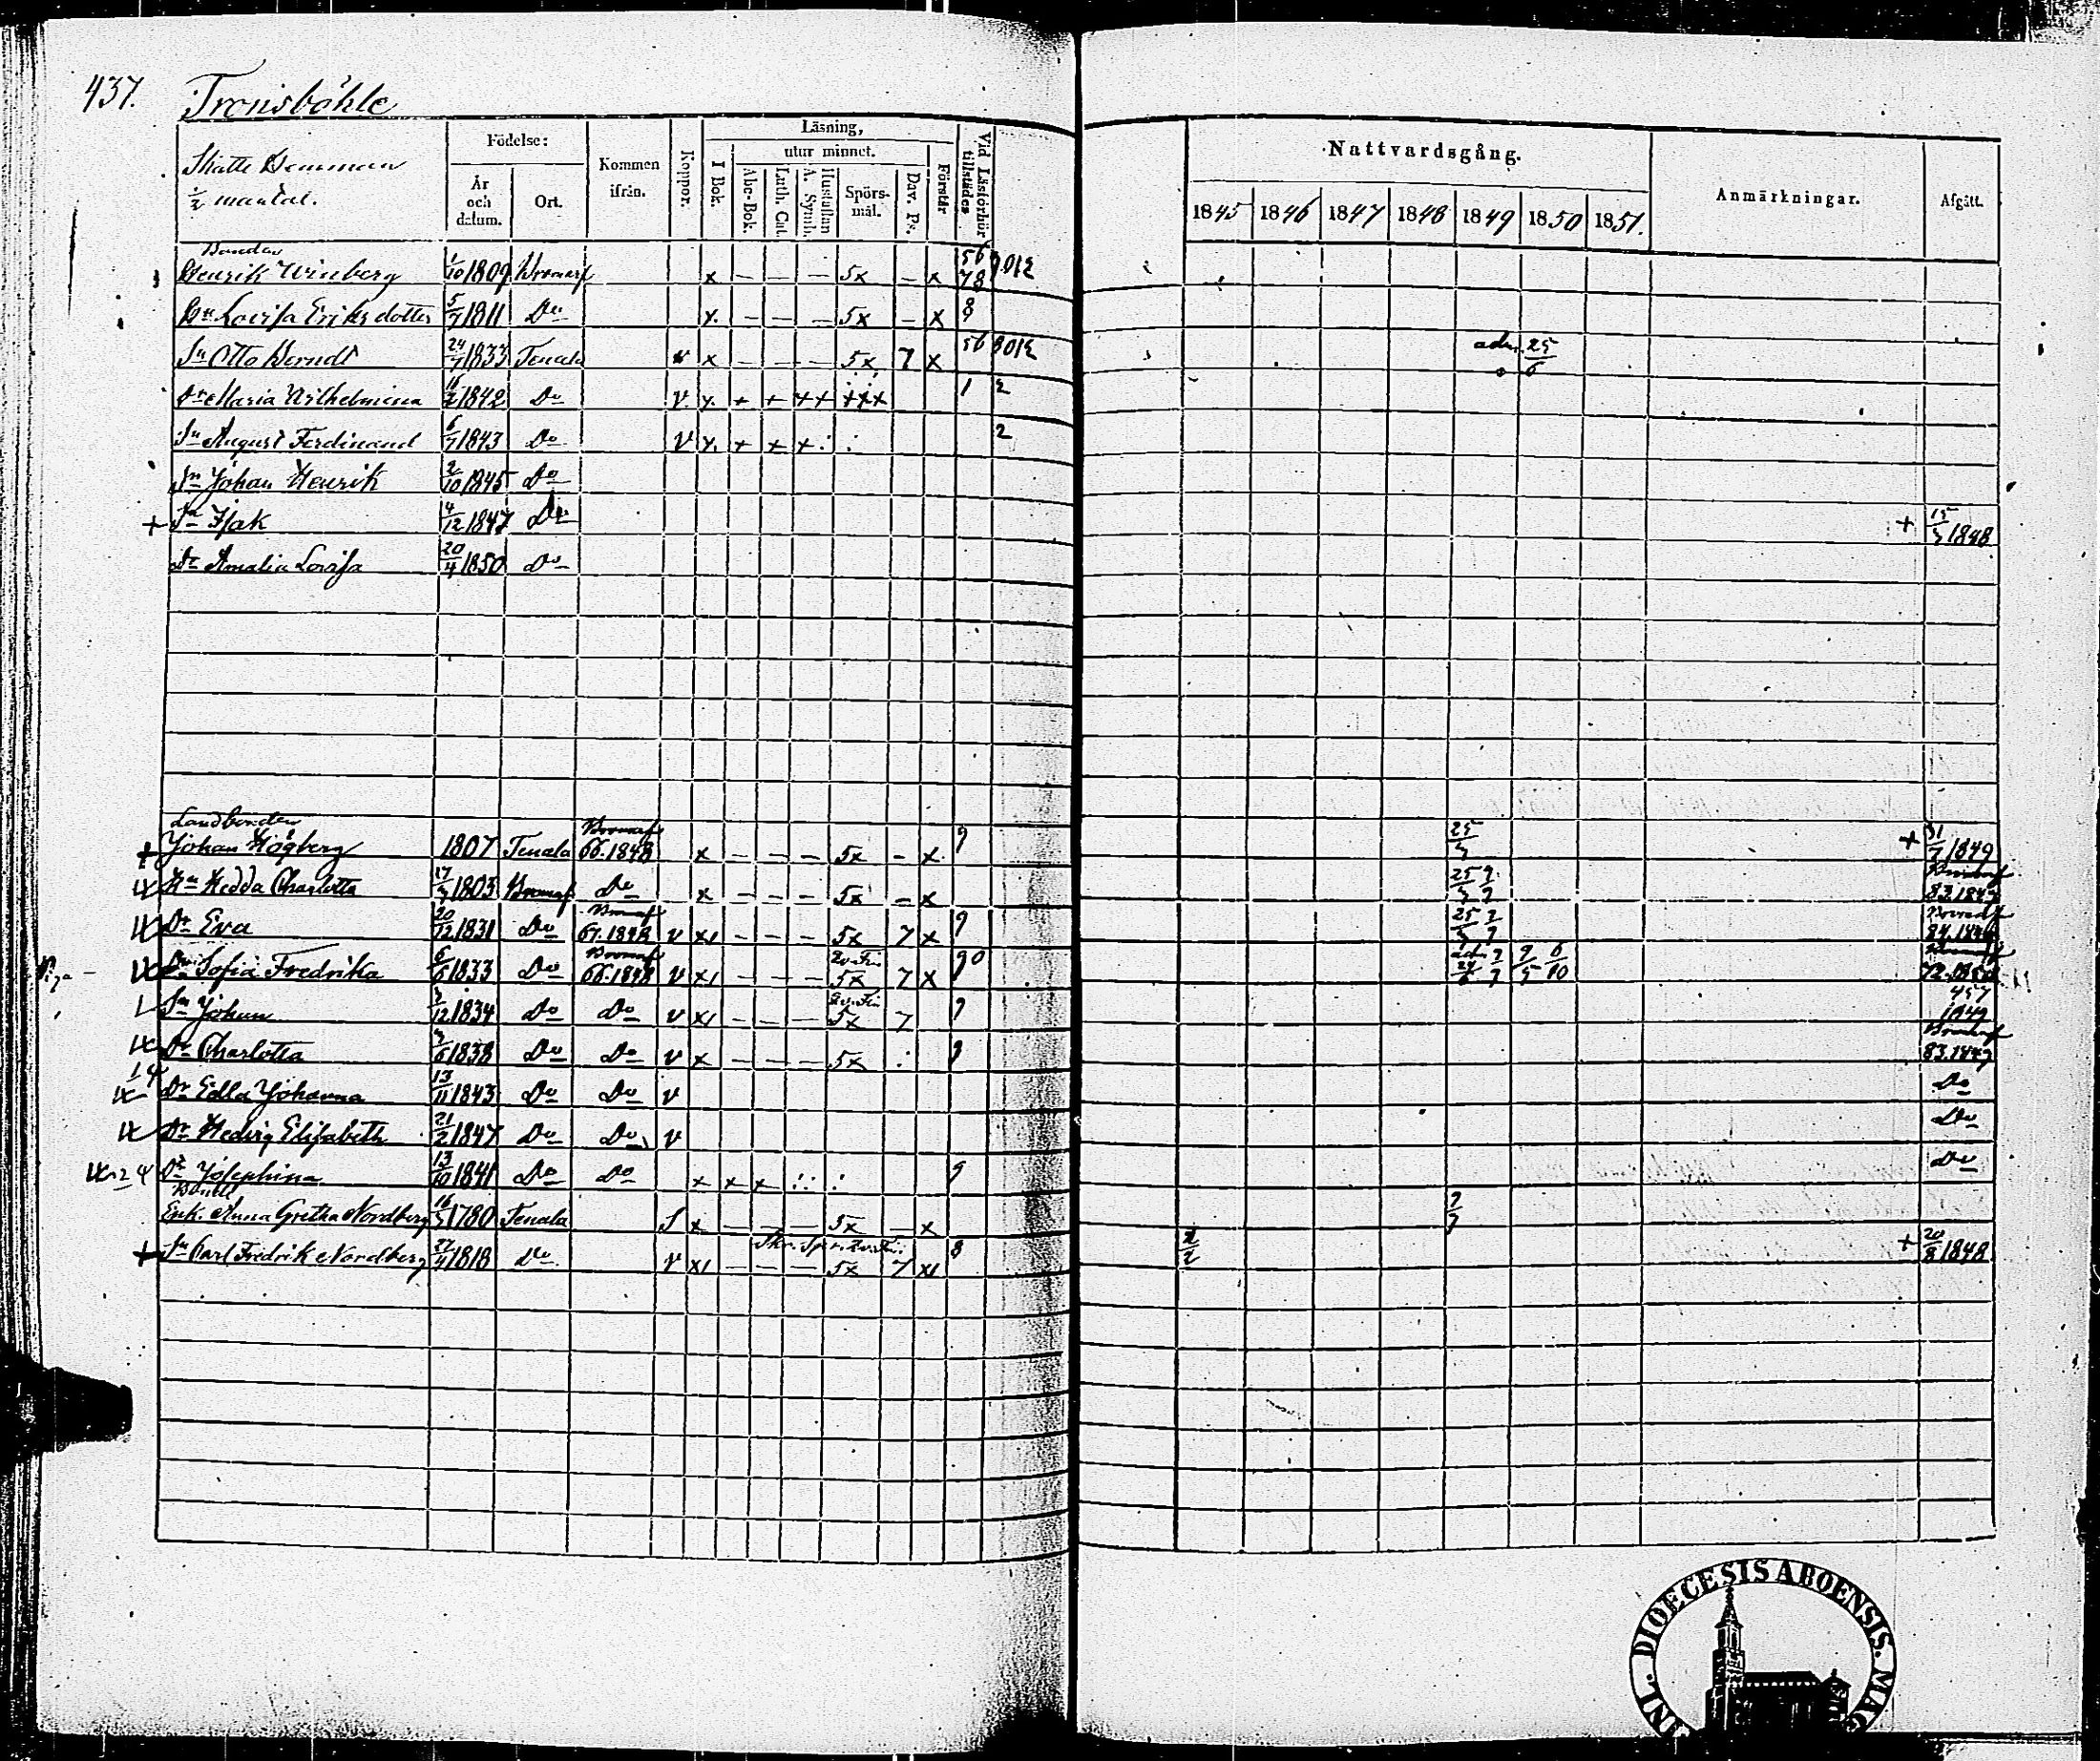 437. Tronsböhle
Skatte Hemman
1/2 mantal.
Födelse: År och datum. Ort. Kommen ifrån. Koppor. Läsning, I Bok. utur minnet. Abc-Bok. Luth. Cat. Hustaflan A. Symb. Spörsmål. Dav. Ps. Förstår Vid Läsförhör tillstädes
Nattvardsgång. 1845 1846 1847 1848 1849 1850 1851. Anmärkningar. Afgått.
Bonden
Henrik Winberg 1/10 1809 Bromarf x – – – 5x – x 56 78
Hu Lovisa Eriksdotter 5/7 1811 Do x – – – 5x – x 8
Sn Otto Berndt 24/7 1833 Tenala v x – – – 5x 7 x 56 adm. 25/6
Dr Maria Wilhelmina 1842 Do v x + + ++ +++ 1 2
Sn August Ferdinand 6/7 1843 Do v x + + + : : 2
Sn Johan Henrik 2/10 1845 Do
+ Sn Isak 4/12 1847 Do + 15/5 1848
Dr Amalia Lovisa 20/4 1850 Do
Landbonden
+ Johan Högberg 1807 Tenala Bromarf 66.1848 x – – – 5x – x 9 25/5 + 31/7 1849
Hu Hedda Charlotta 1803 Bromarf Do x – – – 5x – x 25/5 Bromarf 83.1849
Dr Eva 20/12 1831 Do Bromarf 67.1848 v x1 – – – 5x 7 x 9 25/5 Bromarf 84.1849
Dr Sofia Fredrika 6/6 1833 Do Bromarf 66.1848 v x1 – – – 5x 7 x 90 adm. 9/5 6/10 72.1850
Sn Johan 1834 Do Do v x1 – – – 5x 7 9 457 1849
Dr Charlotta 1838 Do Do v x – – – 5x : 9 Bromarf 83.1849
Dr Edla Johanna 13/11 1843 Do Do v Do
Dr Hedvig Elisabeth 21/2 1847 Do Do v Do
Dr Josephina 13/10 1841 Do Do x x x : : 9 Do
Bonde
Enk. Anna Gretha Nordberg 16/5 1780 Tenala S x – – – 5x – x
+ Sn Carl Fredrik Nordberg 27/4 1818 Do v x1 – – – 5x 7 x1 8 + 20/8 1848
DIOECESIS ABOENSIS. MAG